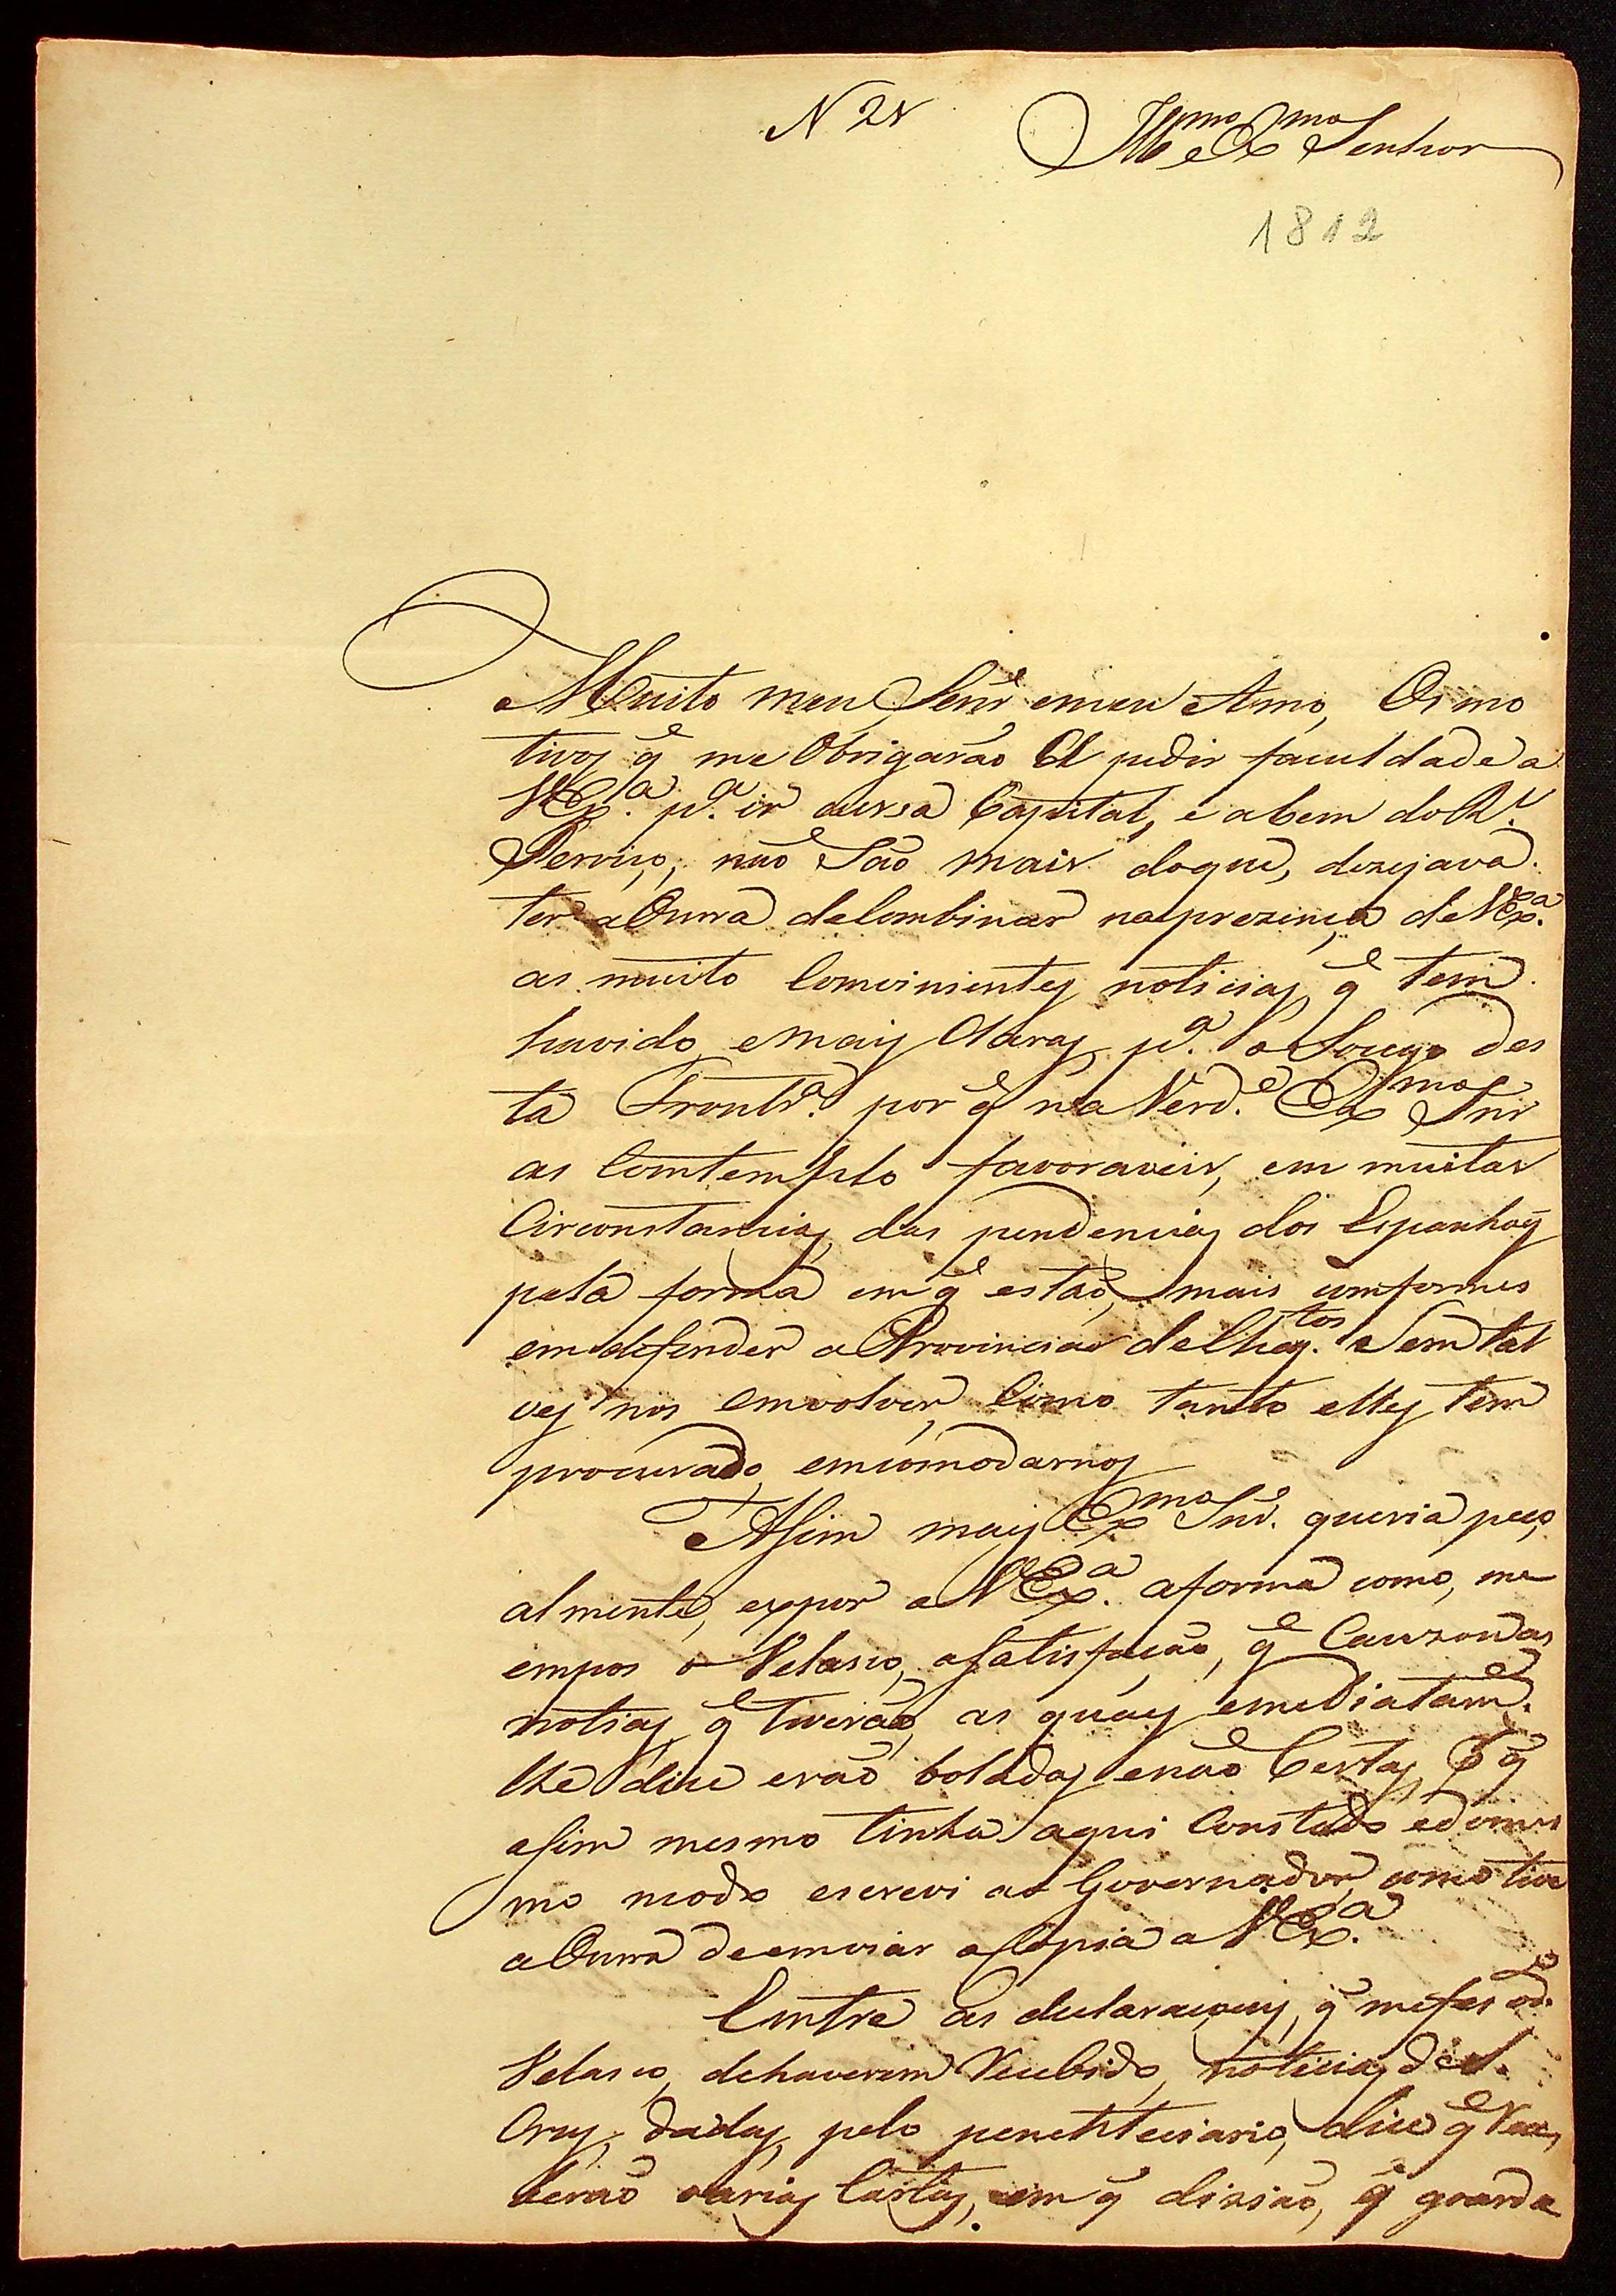 N 21
Ill.mo e Ex.mo Senhor
1812
Muito meu Senr. emeu Amo, Os mo
tivos q̃ me Obrigarão A pedir faculdade a
V Ex.a p.a ir aessa Capital, e abem do R.l
Serviço, não São mais doque, dezejava
ter aOnrra deCombinar naprezença de V Ex.a
as muito Comvinientes noticias q̃ tem
havido emais Claras p.a o Socego des
ta Frontr.a por q̃ na Verd.e Ex.mo Snr
as Comtemplo favoraveis, em muitas
Circonstancias, das pendencias dos Espanhoes
pela forma em q̃ estão, mais comformes
em defender a Provincia de Chiq.tos Sem tal
ves nos emvolver, Como tanto elles tem
procurado emcomodarnos
Asim mais Ex.mo Snr. queria peço
almente, expor a V Ex.a aforma como, me
empos o Velasco, asatisfacão, q̃ Cauzou das
notias q̃ tiverão, as quaes emediatam.e
lhe dice erão boladas enão Certas, p q̃
asim mesmo tinha aqui Constado edomes
mo modo escrevi ao Governador, como tive
aOnrra deemviar aCopia a V Ex.a
Emtre as declaracoens, q̃ mefes od.o
Velasco, dehaverem Recebido, noticias de S.
Crus, dadas, pelo penettenciario, dice q̃ Rece
berão varias Cartas, em q̃ dizião, q̃ goarda